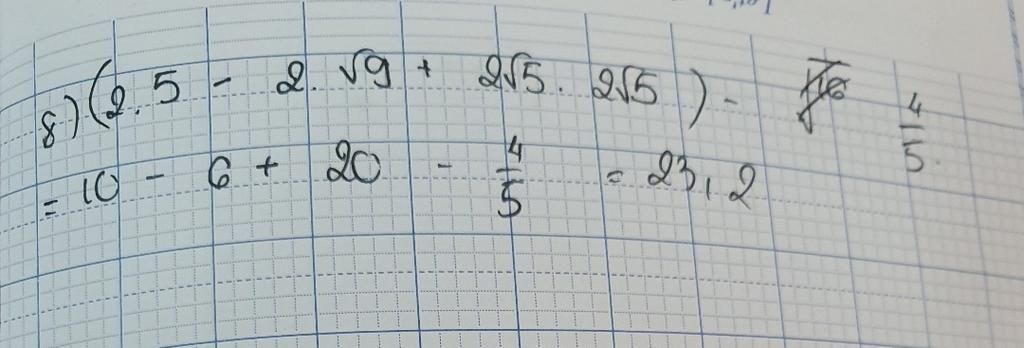 8) (2.5 - 2.√9 + 2√5. 2√5) - 4/5.
= 10 - 6 + 20 - 4/5 = 23,2